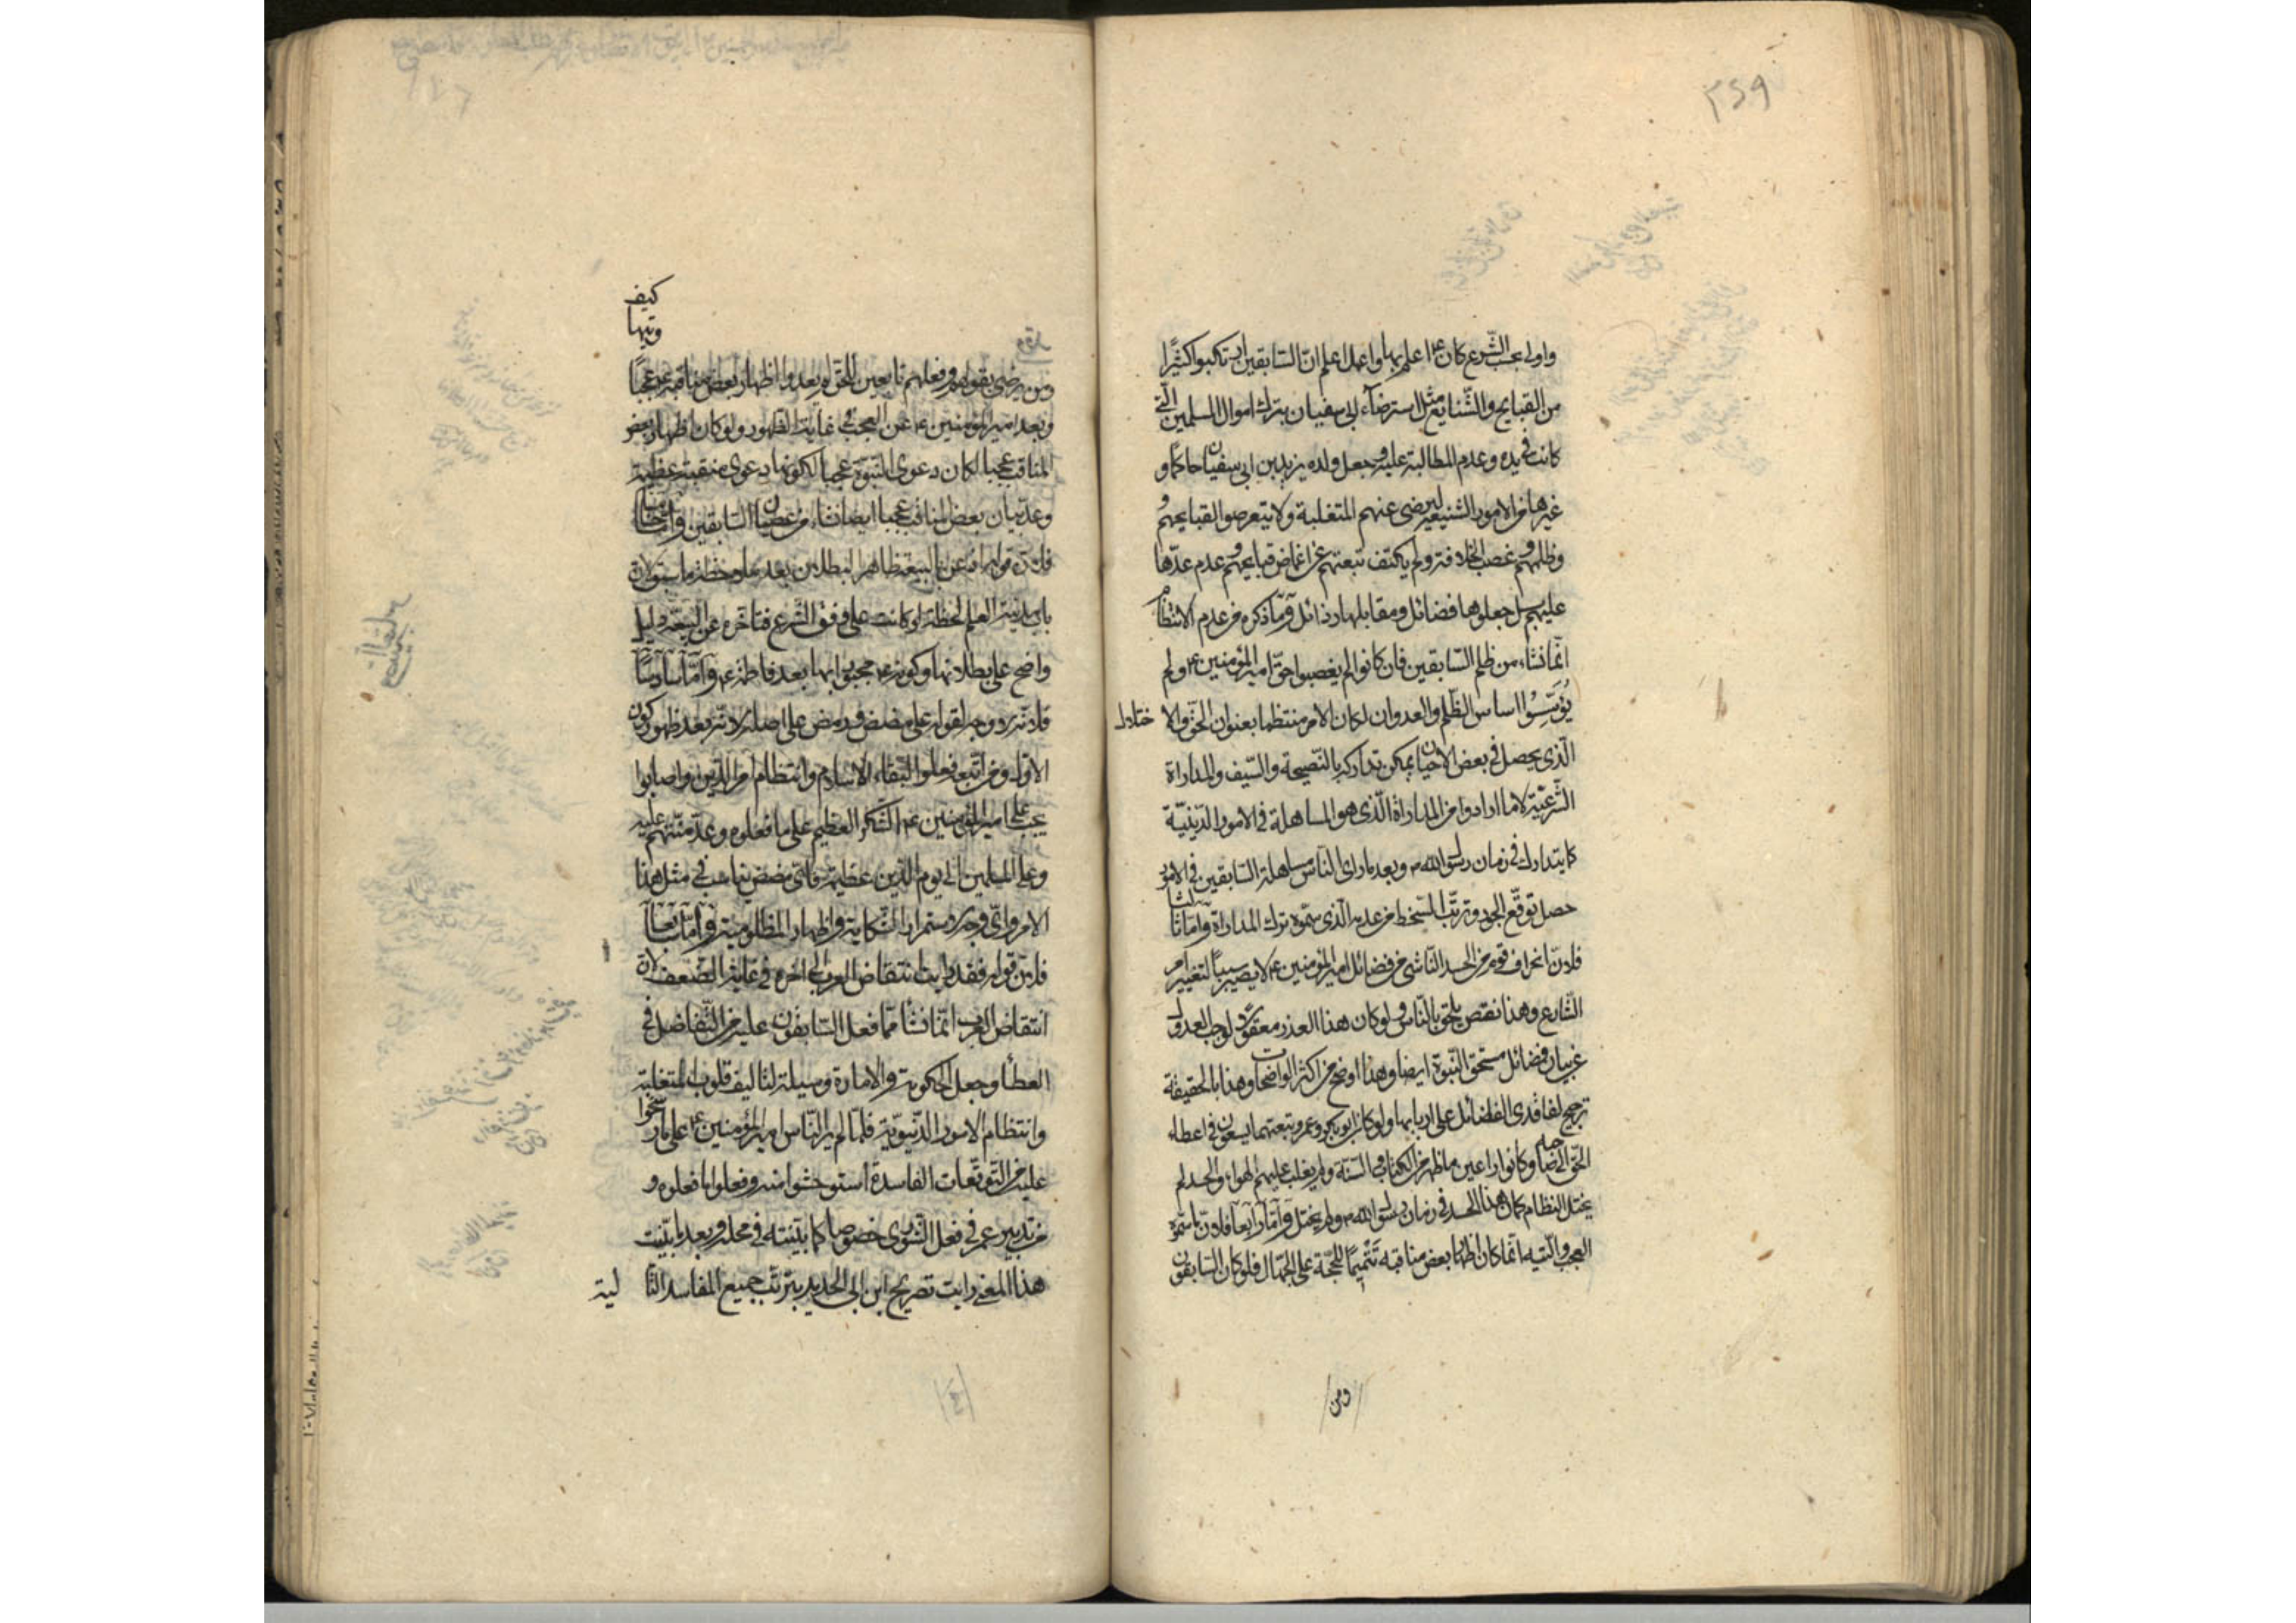 ٣٤٩
واولى بحسب الشرع كان ع اعلم بها واعمل اعلم ان السابقين ارتكبوا كثيرًا
من القبايح والشنايع مثل استرضاء ابي سفيان بترك اموال المسلمين التي
كانت في يده وعدم المطالبة عليه وجعل ولده يزيد بن ابي سفيان حاكما و
غيرها من الامور الشنيعة ليرضى عنهم المتغلبة ولا يتعرضوا لقبايحهم و
وظلمهم وغصب الخلافة ولم يكتف تبعتهم عن اغماض قبايحهم وعدم عدّها
عليهم بل جعلوها فضائل ومقابلها رذائل فما ذكره من عدم الانتظام
انما نشاء من ظلم السابقين فان كانوا لم يغصبوا حق امير المؤمنين ع ولم
يُؤسِّسُوا اساس الظلم والعدوان لكان الامر منتظما بعنوان الحق والا ختلال
الّذى يحصل في بعض الاحيان يمكن تداركه بالنّصيحة والسّيف والمداراة
الشّرعيّة لا ما ارادوا من المداراة الّذى هو المساهلة في الامور الدّينيّة
كما يتدارك في زمان رسول الله ص وبعد ما راى الناس مساهلة السابقين في الامور
حصل توقّع الجور وترتّب السّخط من عدمه الّذى سمّوه ترك المداراة واما ثالثا
فلانّ انحراف قوم من الحسد النّاشي من فضائل امير المؤمنين ع لا يصير سببًا لتغيير امر
الشّارع وهذا نقص يلحق بالنّاس ولو كان هذا العذر معقولا لوجب العدول
عن بيان فضائل مستحق النّبوة ايضا وهذا اوضح من اكثر الواضحات وهذا بالحقيقة
ترجيح لفاقدى الفضائل على اربابها ولو كان ابو بكر وعمر وتبعتهما يسعون في اعطاء
الحق الى صاحبه وكانوا راعين ما ظهر من الكتاب والسّنة ولم يغلب عليهم الهواء والحسد لم
يختل النظام كما كان هذا الحسد في زمان رسول الله ص ولم يختل واما رابعا فلان ما سمّوه
العجب والتّيه انّما كان اظهار بعض مناقبه تتميمًا للحجّة على الجهّال فلو كان السابقون
ومن
كيف
وتيها
ومن يرضى بقولهم وفعلهم تابعين للحق لم يعدوا اظهار بعض مناقبه ع عجبًا
وبعد امير المؤمنين ع عن العجب في غاية الظهور ولو كان اظهار بعض
المناقب عجبا لكان دعوى النبّوة عجبا لكونها دعوى منقبة عظيمة
وعدّ بيان بعض المناقب عجبا ايضا نشاء من عصيان السابقين واما خامسا
فلانّ قوله تاخره عن البيعة ظاهر البطلان بعد ملاحظة ما سبق لان
باب مدينة العلم لحظة لو كانت على وفق الشّرع فتاخّره عن البيعة دليل
واضح على بطلانها وكونه ع مجبورا بها بعد فاطمة ع واما سادسًا
فلانّه لا وجه لقوله على مضض ورمض على اصله لانّه بعد ظهور كون
الاوّل ومن اتّبعه فعلوا لبقاء الاسلام وانتظام امر الدّين واصابوا
يجب على امير المؤمنين ع الشّكر العظيم على ما فعلوه وعدّ منّتهم عليه
وعلى المسلمين الى يوم الدّين عظيمة فاىّ مضض يناسب في مثل هذا
الامر واىّ وجه لاستمرار الشّكاية واظهار المظلومية واما سابعا
فلانّ قوله فقد رايت انتقاض العرب الى اخره في غاية الضعف لان
انتقاض العرب انّما نشأ ممّا فعل السّابقون عليه من التّفاضل في
العطأ وجعل الحكومة والامارة وسيلة لتاليف قلوب المتغلبة
وانتظام الامور الدّنيويّة فلمّا لم ير النّاس امير المؤمنين ع على ما رسخوا
عليه من التّوقّعات الفاسدة استوحشوا منه وفعلوا ما فعلوه و
من تدبير عمر في فعل الشّورى خصوصا كما بيّنته في محله وبعد ما بيّنت
هذا المعنى رايت تصريح ابن ابى الحديد بترتّب جميع المفاسد التّا لية